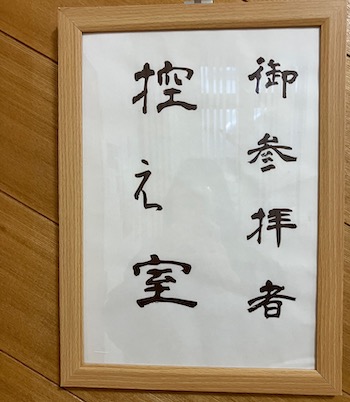 御参拝者
控え室